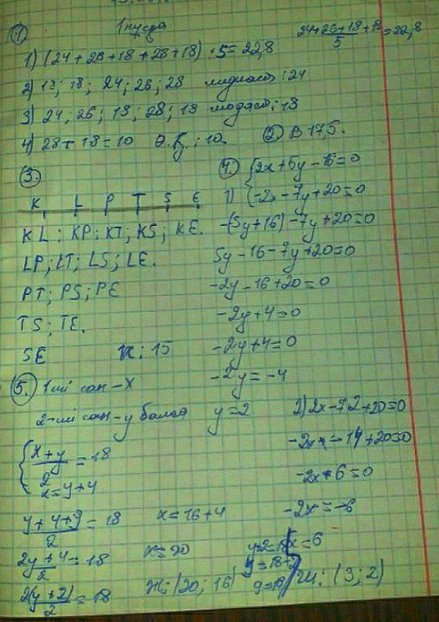 ①
1нұсқа
1) (24+26+18+28+18):5=22,8
24+26+18+18/5=22,8
2) 18; 18; 24; 26; 28 медиана: 24
3) 24; 26; 18; 28; 18 модасы: 18
4) 28-18=10 Ө.қ.: 10.
② В 17,5.
③
K L P T S E
KL; KP; KT; KS; KE.
LP; LT; LS; LE.
PT; PS; PE
TS; TE.
SE К: 15
4. {2x+5y-16=0
1) {-2x-7y+20=0
-(5y+16)-7y+20=0
5y-16-7y+20=0
-2y-16+20=0
-2y+4=0
-2y+4=0
-2y=-4
y=2
2) 2x-7·2+20=0
-2x-14+20=0
-2x+6=0
-2x=-6
x=6
Ж: (3; 2)
5. 1-ші сан-x
2-ші сан-y болса
{x+y/2=18
x=y+4
y+4+y/2=18
2y+4/2=18
2(y+2)/2=18
x=16+4
x=20
Ж: (20; 16)
y+2=18
y=18-2